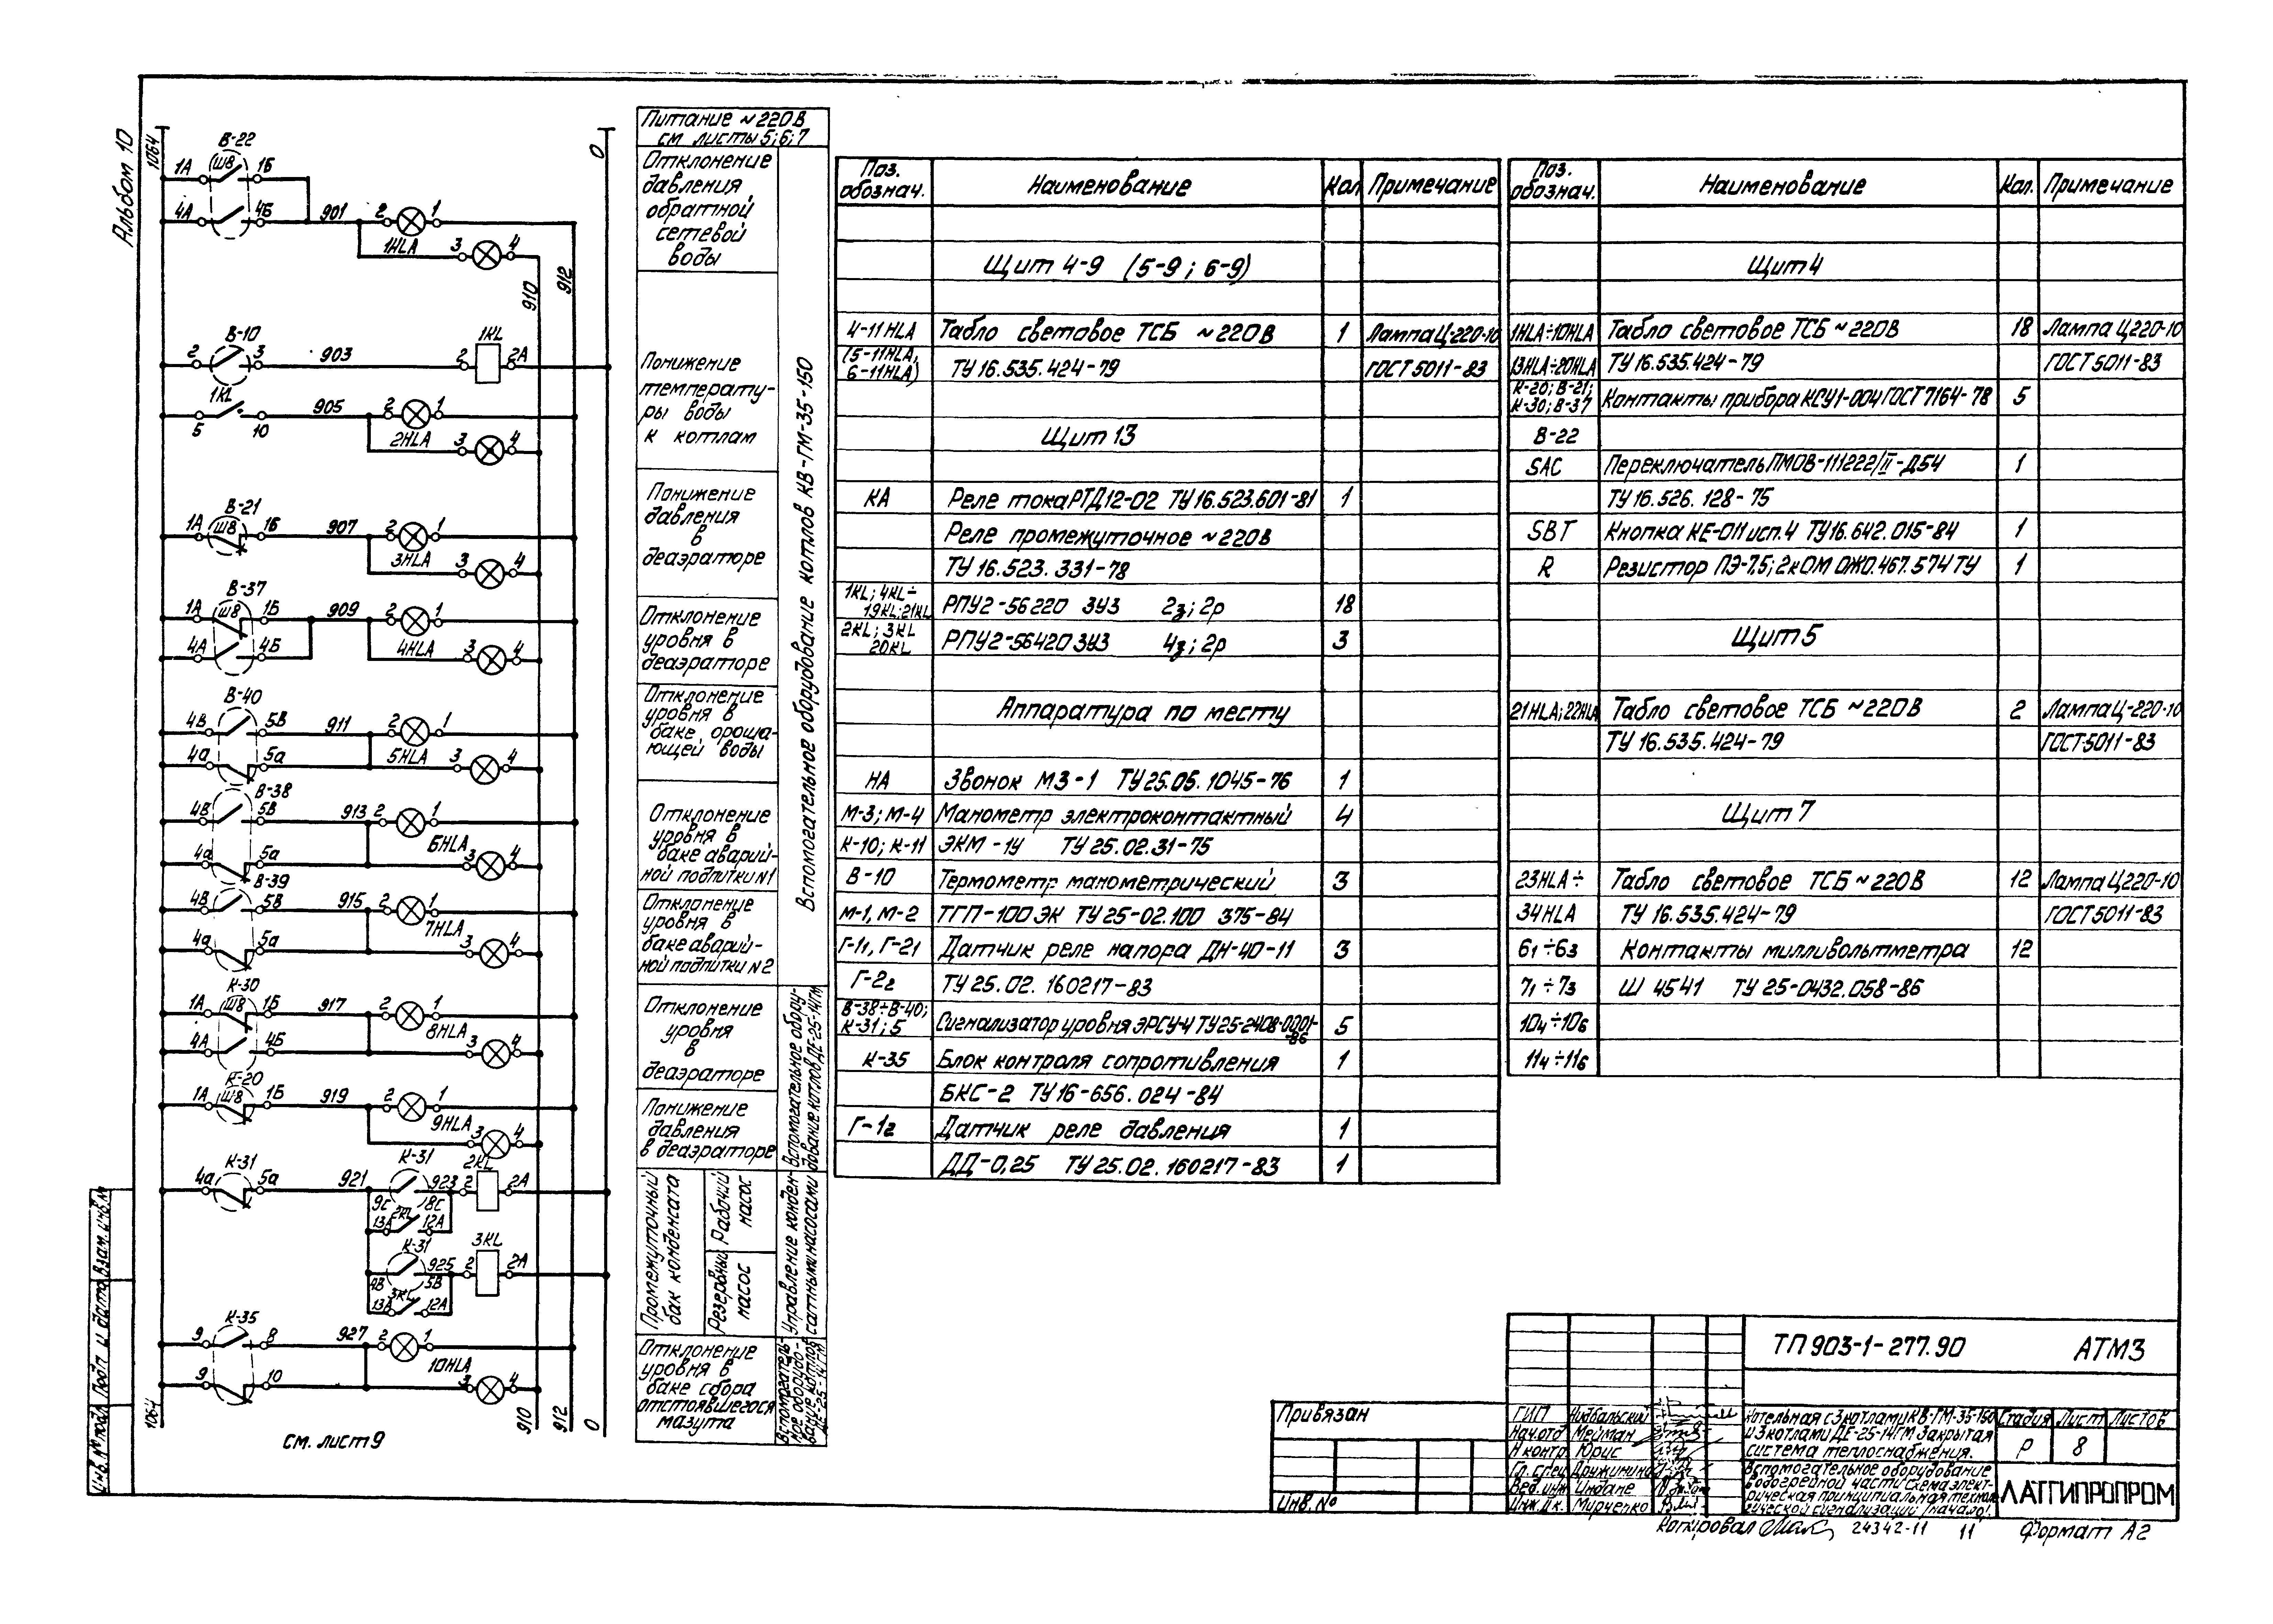 Альбом 10
1064
0
В-22
1А Ш8 1Б
4А 4Б 901 2 1
1HLA 3 4
910
912
В-10
2 3 903 2 1KL 2А
1KL
5 10 905 2 1
2HLA 3 4
В-21
1А Ш8 1Б 907 2 1
3HLA 3 4
В-37
1А Ш8 1Б 909 2 1
4А 4Б 4HLA 3 4
В-40
4В 5В 911 2 1
4а 5а 5HLA 3 4
В-38
4В 5В 913 2 1
6HLA
4а 5а 3 4
В-39
4В 5В 915 2 1
7HLA
4а 5а 3 4
К-30
1А Ш8 1Б 917 2 1
8HLA
4А 4Б 3 4
К-20
1А Ш8 1Б 919 2 1
9HLA 3 4
К-31
4а 5а 921 К-31 923 2 2KL 2А
9С 8С
13А 2KL 12А
К-31
925 2 3KL 2А
4В 5В
13А 3KL 12А
К-35
9 8 927 2 1
10HLA
9 10 3 4
1064
910
912
0
см. лист 9
Питание ~220В
см листы 5; 6; 7
Отклонение
давления
обратной
сетевой
воды
Понижение
температу-
ры воды
к котлам
Понижение
давления
в
деаэраторе
Отклонение
уровня в
деаэраторе
Отклонение
уровня в
баке ороша-
ющей воды
Отклонение
уровня в
баке аварий-
ной подпитки N1
Отклонение
уровня в
баке аварий-
ной подпитки N2
Отклонение
уровня
в
деаэраторе
Понижение
давления
в деаэраторе
Промежуточный
бак конденсата
Рабочий
насос
Резервный
насос
Отклонение
уровня в
баке сбора
отстоявшегося
мазута
Вспомогательное оборудование котлов КВ-ГМ-35-150
Вспомогательное обору-
дование котлов ДЕ-25-14ГМ
Управление конден-
сатными насосами
Вспомогатель-
ное оборудо-
вание котлов
ДЕ-25-14 ГМ
Поз. обознач. Наименование Кол Примечание
Щит 4-9 (5-9; 6-9)
4-11 HLA Табло световое ТСБ ~220В 1 Лампа Ц-220-10
(5-11HLA, 6-11HLA) ТУ 16.535.424-79 ГОСТ 5011-83
Щит 13
КА Реле тока РТД12-02 ТУ 16.523.601-81 1
Реле промежуточное ~220В
ТУ 16.523.331-78
1KL; 4KL÷19KL; 21KL РПУ2-56220 3У3 2з; 2р 18
2KL; 3KL 20KL РПУ2-56420 3У3 4з; 2р 3
Аппаратура по месту
НА Звонок МЗ-1 ТУ 25.05.1045-76 1
М-3; М-4 Манометр электроконтактный 4
К-10; К-11 ЭКМ-1У ТУ 25.02.31-75
В-10 Термометр манометрический 3
М-1, М-2 ТГП-100ЭК ТУ 25-02.100 375-84
Г-11, Г-21 Датчик реле напора ДН-40-11 3
Г-2г ТУ 25.02.160217-83
В-38÷В-40; К-31; 5 Сигнализатор уровня ЭРСУ-4 ТУ 25-2408-0001-86 5
К-35 Блок контроля сопротивления 1
БКС-2 ТУ 16-656.024-84
Г-1г Датчик реле давления 1
ДД-0,25 ТУ 25.02.160217-83 1
Поз. обознач. Наименование Кол. Примечание
Щит 4
1HLA÷10HLA Табло световое ТСБ ~220В 18 Лампа Ц220-10
13HLA÷20HLA ТУ 16.535.424-79 ГОСТ 5011-83
К-20; В-21; К-30; В-37 Контакты прибора КСУ1-004 ГОСТ 7164-78 5
В-22
SAC Переключатель ПМОВ-111222/II-Д54 1
ТУ 16.526.128-75
SBT Кнопка КЕ-011 исп.4 ТУ 16.642.015-84 1
R Резистор ПЭ-7,5; 2кОМ ОЖО.467.574 ТУ 1
Щит 5
21HLA; 22HLA Табло световое ТСБ ~220В 2 Лампа Ц-220-10
ТУ 16.535.424-79 ГОСТ 5011-83
Щит 7
23HLA÷ Табло световое ТСБ ~220В 12 Лампа Ц220-10
34HLA ТУ 16.535.424-79 ГОСТ 5011-83
6₁÷6₃ Контакты милливольтметра 12
7₁÷7₃ Ш 4541 ТУ 25-0432.058-86
10₄÷10₆
11₄÷11₆
ТП 903-1-277.90 АТМ3
Привязан
Инв. №
ГИП Нидбальский
Нач.отд Мейман
Н контр Юрис
Гл. спец Дружинина
Вед. инж Индане
Инж. II к. Мирченко
Котельная с 3 котлами КВ-ГМ-35-150
и 3 котлами ДЕ-25-14ГМ Закрытая
система теплоснабжения.
Стадия Лист Листов
Р 8
Вспомогательное оборудование
водогрейной части Схема элект-
рическая принципиальная техноло-
гической сигнализации (начало).
ЛАТГИПРОПРОМ
Копировал 24342-11 11 Формат А2
Инв. № подл. Подп. и дата Взам. инв. №